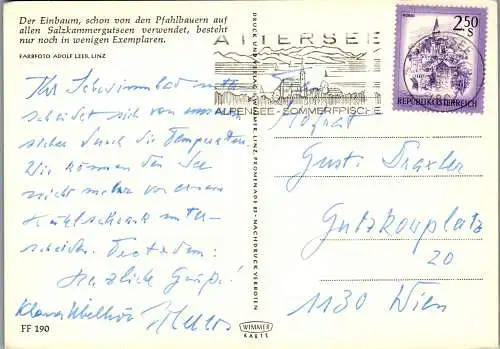 Der Einbaum, schon von den Pfahlbauern auf
allen Salzkammergutseen verwendet, besteht
nur noch in wenigen Exemplaren.
FARBFOTO ADOLF LEEB, LINZ
Ihr Schwimmbad
scheidet sich von
sicher durch die Temperatur.
Wir können den See
nicht mehr von einem
Kühlschrank unter-
scheiden. Trotzdem:
Herzliche Grüße!
FF 190
DRUCK UND VERLAG WIMMER, LINZ, PROMENADE 23 - NACHDRUCK VERBOTEN
WIMMER
KARTE
ATTERSEE
ALPENSEE - SOMMERFRISCHE
2.50
S
REPUBLIK ÖSTERREICH
Hofrat
Gust. Draxler
Gutzkowplatz
20
1130 Wien